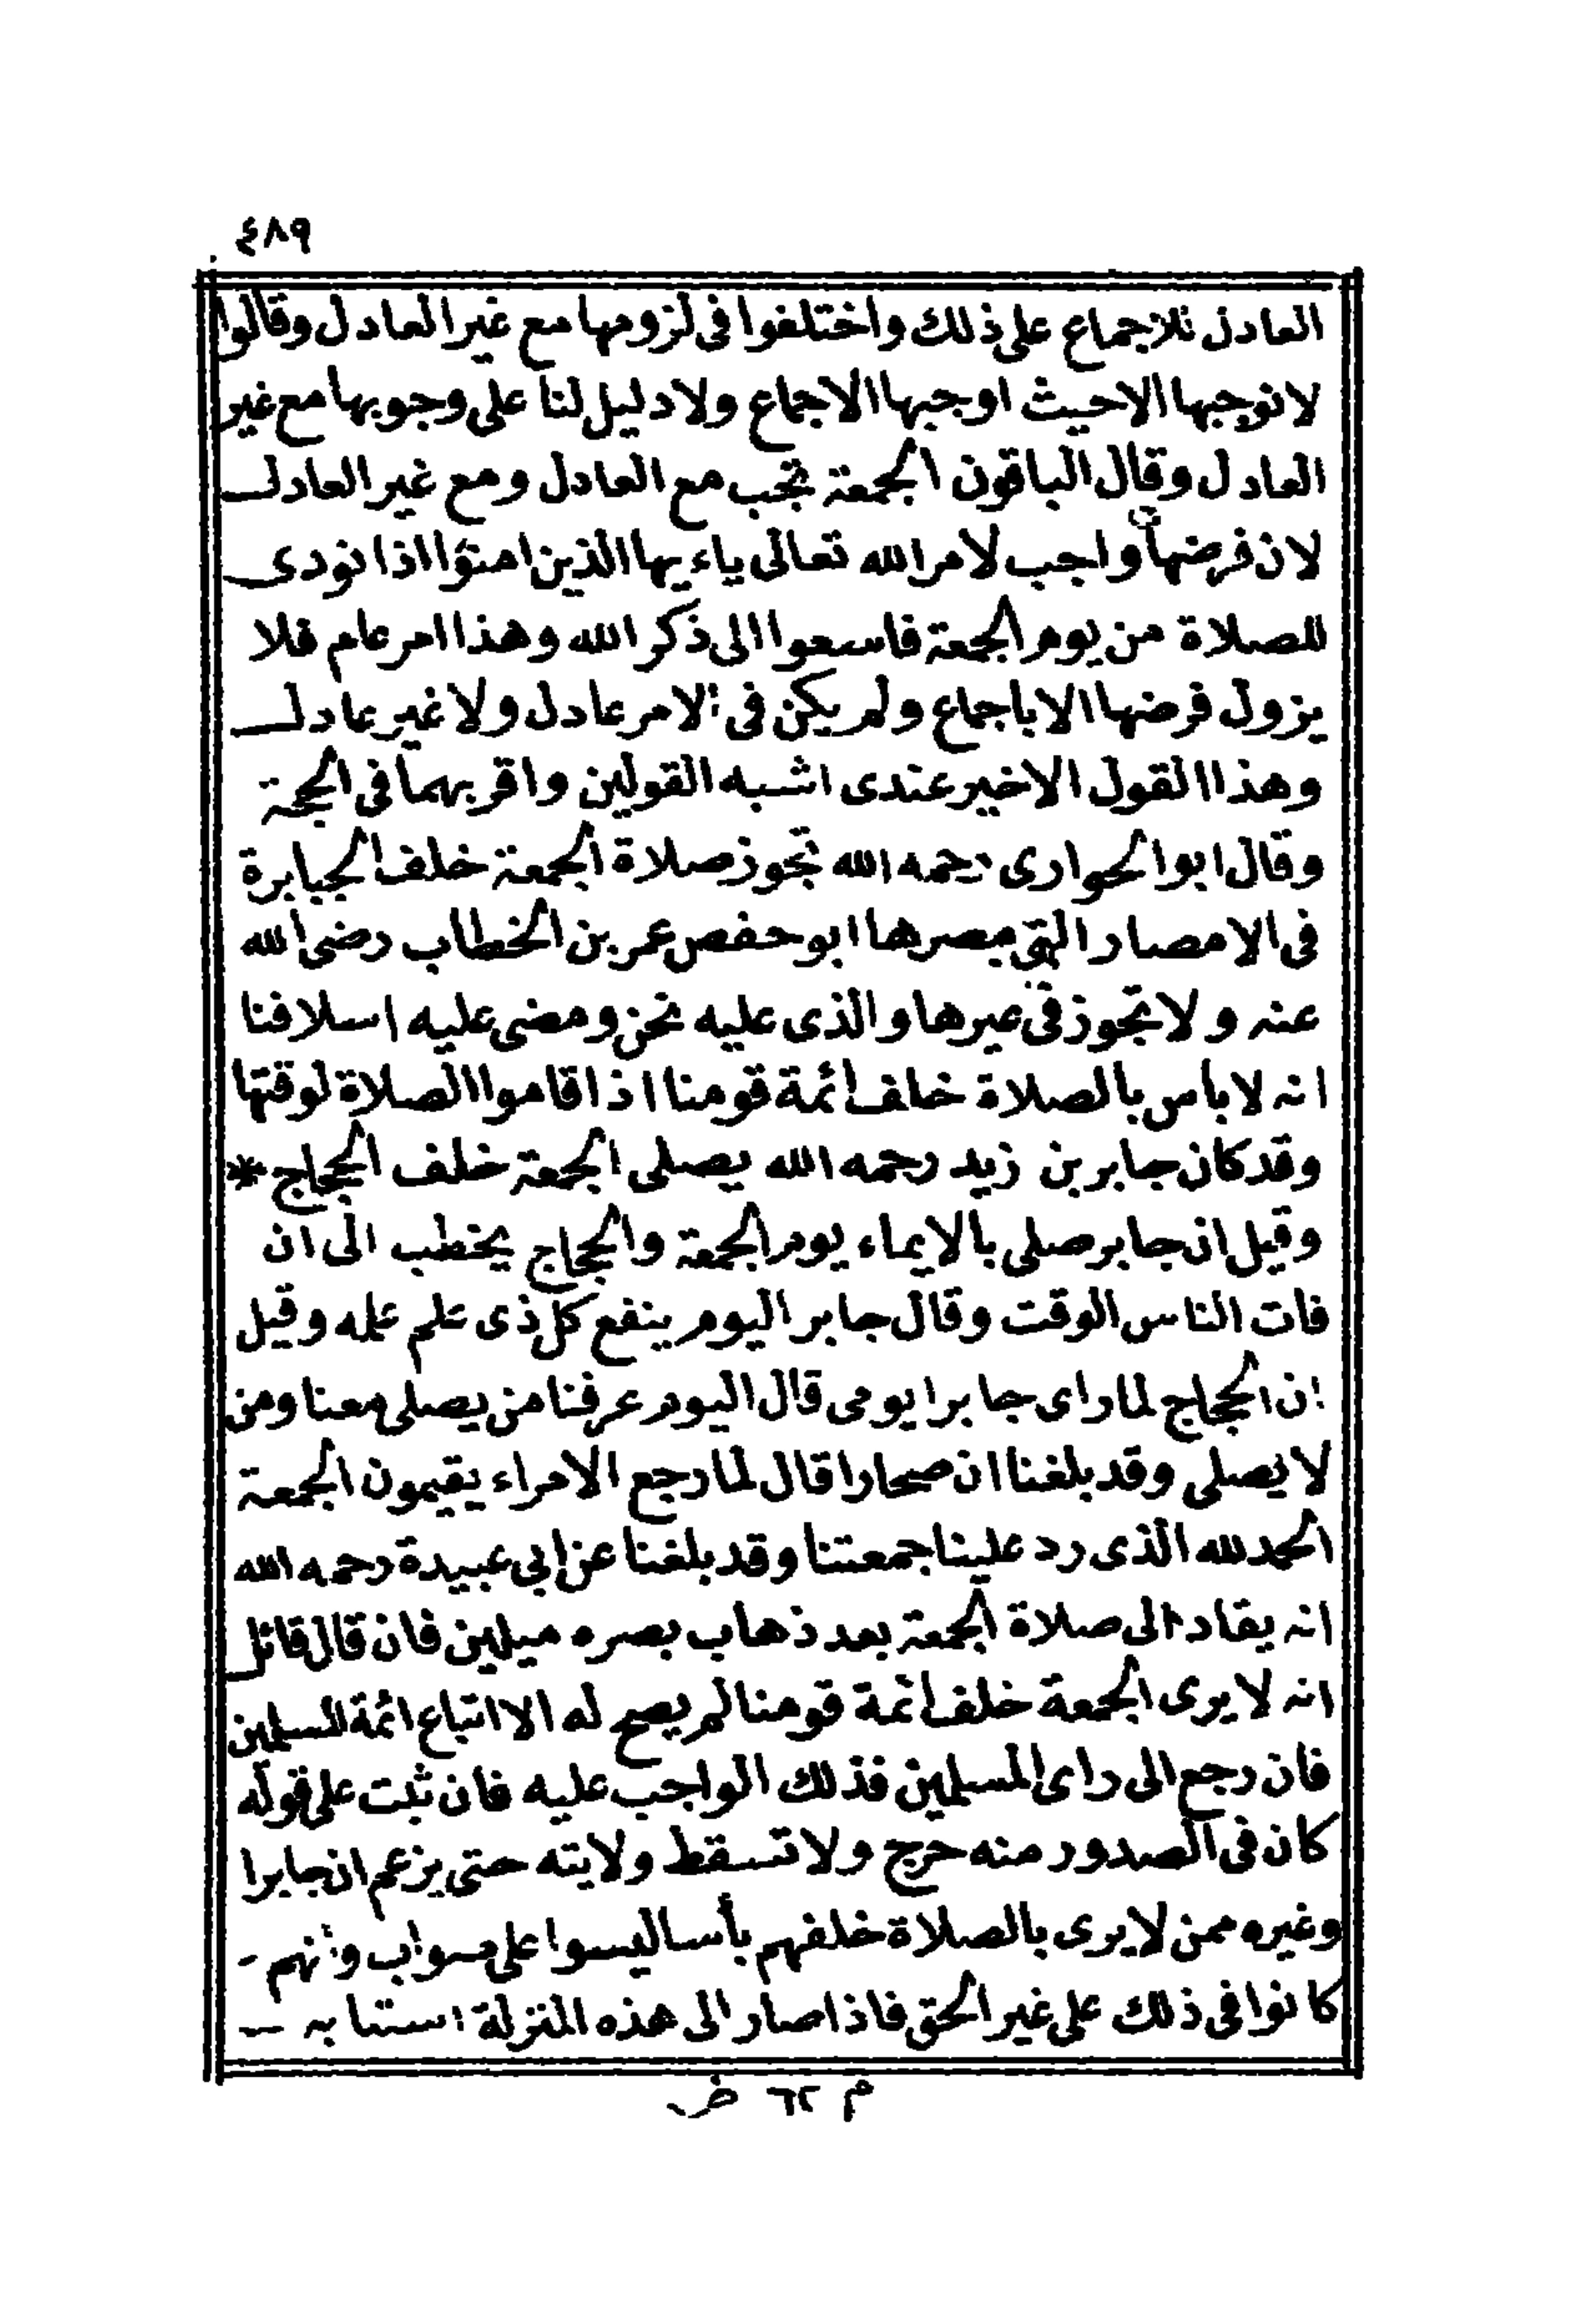 ٤٨٩
العادل للاجماع على ذلك واختلفوا فى لزومها مع غير العادل وقالوا
لا نوجبها الا حيث اوجبها الاجماع ولا دليل لنا على وجوبها مع غير
العادل وقال الباقون الجمعة تجب مع العادل ومع غير العادل
لان فرضها واجب لامر الله تعالى ياءيها الذين امنوا اذا نودى
للصلاة من يوم الجمعة فاسعوا الى ذكر الله وهذا امر عام فلا
يزول فرضها الا باجماع ولم يكن فى الامر عادل ولا غير عادل
وهذا القول الاخير عندى اشبه القولين واقربهما فى الحجة
وقال ابو الحوارى رحمه الله تجوز صلاة الجمعة خلف الجبابرة
فى الامصار التى مصرها ابو حفص عمر بن الخطاب رضى الله
عنه ولا تجوز فى غيرها والذى عليه نحن ومضى عليه اسلافنا
انه لا باس بالصلاة خلف ائمة قومنا اذا قاموا الصلاة لوقتها
وقد كان جابر بن زيد رحمه الله يصلى الجمعة خلف الحجاج *
وقيل ان جابر صلى بالايماء يوم الجمعة والحجاج يخطب الى ان
فات الناس الوقت وقال جابر اليوم ينفع كل ذى علم علمه وقيل
ان الحجاج لما راى جابرا يومى قال اليوم عرفنا من يصلى معنا ومن
لا يصلى وقد بلغنا ان صحارا قال لما رجع الامراء يقيمون الجمعة
الحمد لله الذى رد علينا جمعتنا وقد بلغنا عن ابى عبيدة رحمه الله
انه يقاد الى صلاة الجمعة بعد ذهاب بصره ميلين فان قال قائل
انه لا يرى الجمعة خلف ائمة قومنا لم يصح له الا اتباع ائمة المسلمين
فان رجع الى راى المسلمين فذلك الواجب عليه فان ثبت على قوله
كان فى الصدور منه حرج ولا تسقط ولايته حتى يزعم ان جابرا
وغيره ممن لا يرى بالصلاة خلفهم بأسا ليسوا على صواب وانهم
كانوا فى ذلك على غير الحق فاذا صار الى هذه المنزلة استتابه
م ٦٢ ض